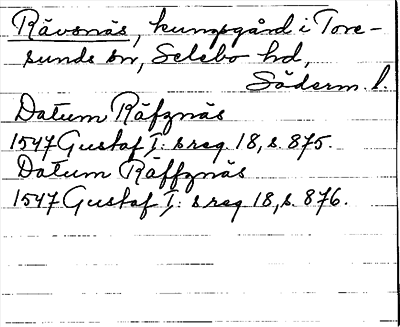 Rävsnäs, kungsgård i Tore-
sunds sn, Selebo hd,
Söderm. l.
Datum Räfznäs
1547 Gustaf I: s reg. 18, s. 875.
Datum Räffznäs
1547 Gustaf I: s reg 18, s. 876.